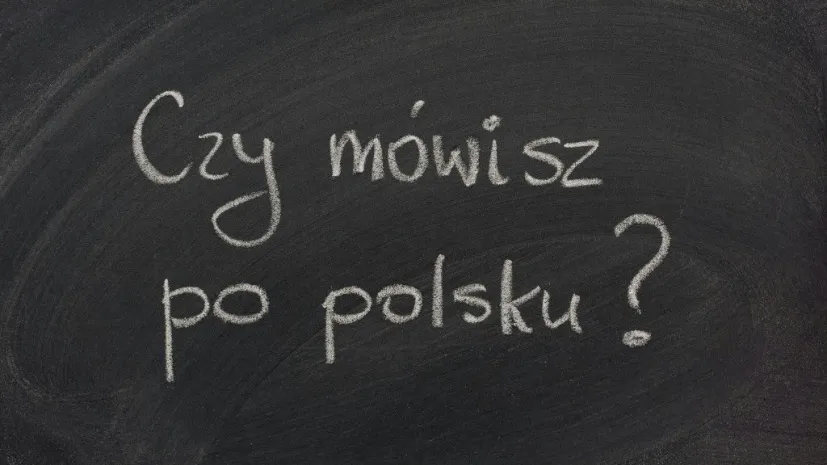 Czy mówisz
po polsku?